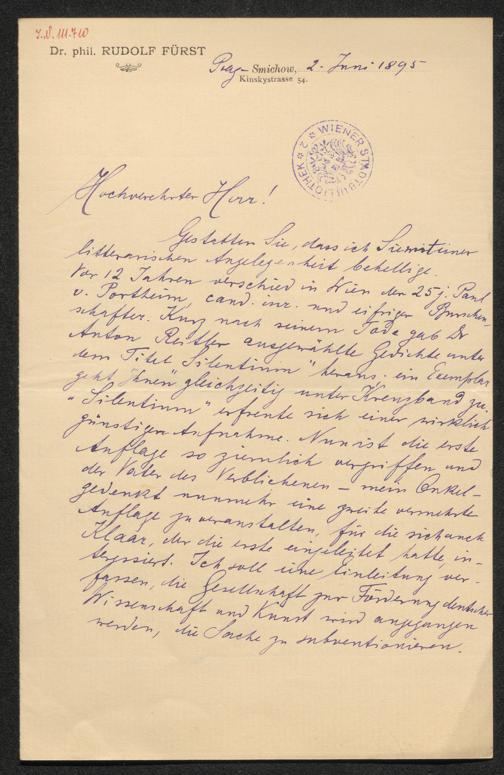 I.N. 111.710
Dr. phil. RUDOLF FÜRST
Prag- Smichow, 2. Juni 1895
Kinskystrasse 54.
WIENER STADTBIBLIOTHEK
Hochverehrter Herr!
Gestatten Sie, dass ich Sie mit einer
litterarischen Angelegenheit behellige.
Vor 12 Jahren verschied in Wien der 25 j. Paul
v. Portheim, cand. iur. und eifriger Burschen-
schafter. Kurz nach seinem Tode gab Dr
Anton Reitler ausgewählte Gedichte unter
dem Titel "Silentium" heraus. ein Exemplar
geht Ihnen gleichzeitig unter Kreuzband zu.
"Silentium" erfreute sich einer wirklich
günstigen Aufnahme. Nun ist die erste
Auflage so ziemlich vergriffen und
der Vater des Verblichenen – mein Onkel –
gedenkt nunmehr eine zweite vermehrte
Auflage zu veranstalten, für die sich auch
Klaar, der die erste eingeleitet hatte, in-
teressiert. Ich soll eine Einleitung ver-
fassen, die Gesellschaft zur Förderung deutscher
Wissenschaft und Kunst wird angegangen
werden, die Sache zu subventionieren.